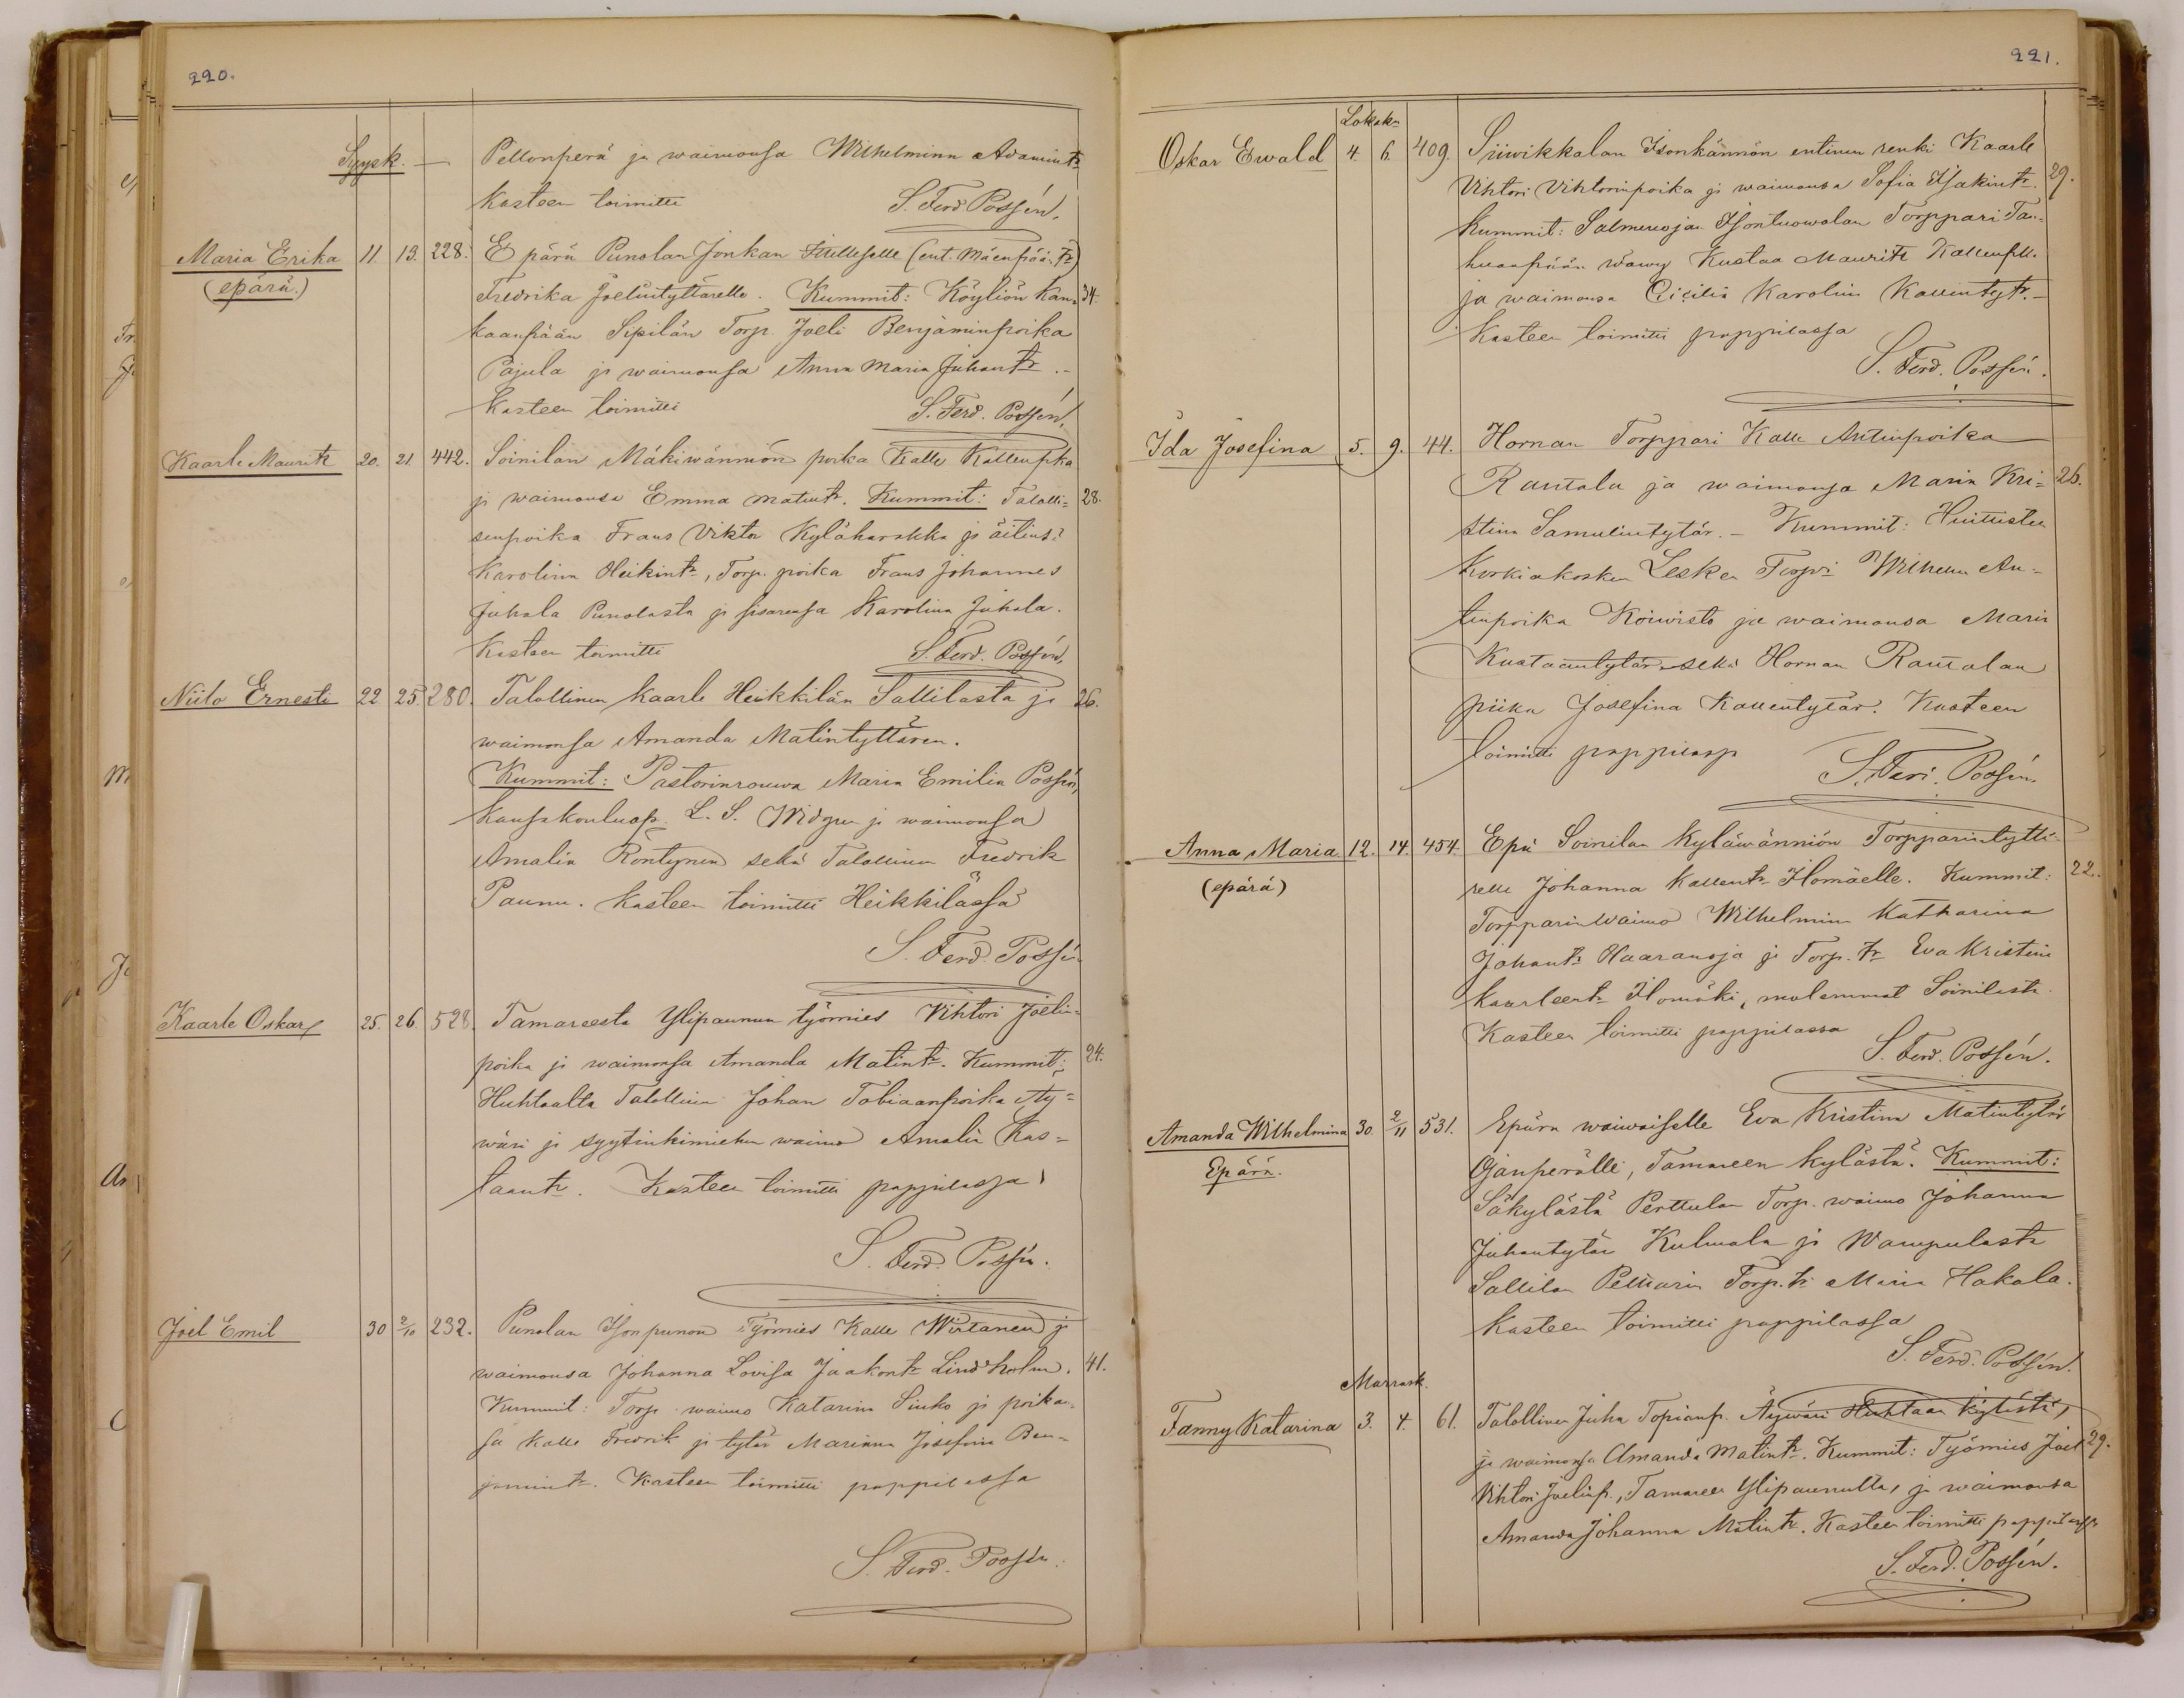 220.
Syysk. — Pellonperä ja waimonsa Wilhelmina Adamintr
Kasteen toimitti S. Ferd. Possén.
Maria Erika 11. 13. 228. Epärä Punolan Jonkan (ent. Mäenpään tr)
(epärä.) Fredrika Joelintyttärelle. Kummit: Köyliön Kan= 34.
kaanpään Sipilän Torp. Joeli Benjaminpoika
Pajula ja waimonsa Anna Maria Juhantr. –
Kasteen toimitti S. Ferd. Possén.
Kaarle Maurits 20. 21. 442. Soinilan Mäkiwännion poika Kalle Kallenpka
ja waimonsa Emma Matintr. Kummit: Talolli= 28.
senpoika Frans Viktor Kyläharakka ja äitinsä
Karolina Heikintr, Torp. poika Frans Johannes
Juhala Punolasta ja sisarensa Karolina Juhala.
Kasteen toimitti S. Ferd. Possén.
Niilo Ernesti 22 25 280. Talollinen Kaarle Heikkilän Sallilasta ja 26.
waimonsa Amanda Matintyttären.
Kummit: Pastorinrouwa Maria Emilia Possén,
Kansakoulunop. L. S. Widgren ja waimonsa
Amalia Röntynen sekä Talollinen Fredrik
Paunu. Kasteen toimitti Heikkilässä
S. Ferd. Possén
Kaarle Oskar 25. 26. 528. Tamareesta Ylipaunun työmies Vihtori Joelin=
poika ja waimonsa Amanda Matintr. Kummit: 24.
Huhtaalta Talollinen Johan Tobiaanpoika Äy=
wäri ja syytinkimiehen waimo Amalia Kus=
taantr. Kasteen toimitti pappilassa
S. Ferd. Possén.
Joel Emil 30 2/10 232. Punolan Isonpunon Työmies Kalle Wirtanen ja
waimonsa Johanna Lovisa Jaakontr Lindholm. 41.
Kummit: Torp. waimo Katarina Sinko ja poikan=
sa Kalle Fredrik ja tytär Marianna Josefina Ben=
jamintr. Kasteen toimitti pappilassa
S. Ferd. Possén.
221.
Lokak.
Oskar Ewald 4. 6. 409. Siiwikkalan Isonkännön entinen renki Kaarle
Vihtori Vihtorinpoika ja waimonsa Sofia Isakintr. 29.
Kummit: Salmenojan Isontuowolan Torppari Tan=
huanpään wäwy Kustaa Maurits Kallenpk.
ja waimonsa Cicilia Karolina Kallentytr. –
Kasteen toimitti pappilassa
S. Ferd. Possén.
Ida Josefina 5. 9. 44. Hornan Torppari Kalle Antinpoika
Rautala ja waimonsa Maria Kri= 26.
stina Samulintytär. – Kummit: Huittisten
Korkiakosken Lesken Torpri Wilhelm An=
tinpoika Koiwisto ja waimonsa Maria
Kustaantytär sekä Hornan Rautalan
piika Josefina Kallentytär. Kasteen
toimitti pappilassa S. Ferd. Possén.
Anna Maria 12. 14. 454. Epä Soinilan Kyläwännion Torpparintyttä=
(epärä) relle Johanna Kallentr Ilomäelle. Kummit: 22.
Torpparin waimo Wilhelmina Katharina
Johantr Haaranoja ja Torp. tr Eva Kristina
Kaarleentr Ilomäki, molemmat Soinilasta.
Kasteen toimitti pappilassa
S. Ferd. Possén.
Amanda Wilhelmina 30. 2/11 531. Epärä waiwaiselle Eva Kristina Matintytär
Epärä. Ojanperälle, Tamareen kylästä. Kummit:
Säkylästä Perttulan Torp. waimo Johanna
Juhantytär Kulmala ja Wampulasta
Sallilan Pelttarin Torp. tr Maria Hakala.
Kasteen toimitti pappilassa
S. Ferd. Possén.
Marrask.
Fanny Katarina 3. 4. 61. Talollinen Juha Topianp. Äywäri Huhtaan kylästä,
ja waimonsa Amanda Matintr. Kummit: Työmies Joel 29.
Vihtori Joelinp., Tamareen Ylipaunulta, ja waimonsa
Amanda Johanna Matintr. Kasteen toimitti pappilassa
S. Ferd. Possén.